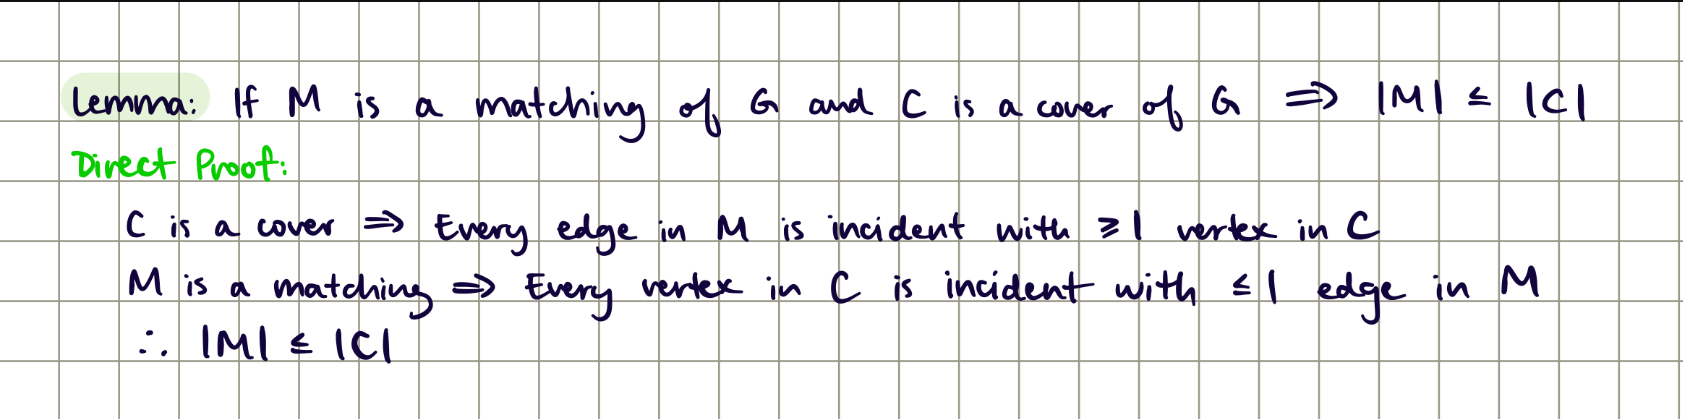 Lemma: If M is a matching of G and C is a cover of G ⇒ |M| ≤ |C|
Direct Proof:
C is a cover ⇒ Every edge in M is incident with ≥ 1 vertex in C
M is a matching ⇒ Every vertex in C is incident with ≤ 1 edge in M
∴ |M| ≤ |C|